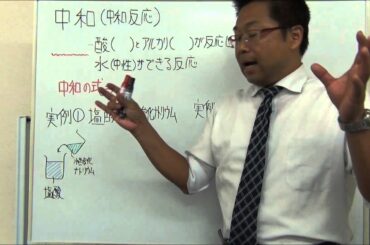 中和 (中和反応)
酸( )とアルカリ( )が反応
水(中性)ができる反応
中和の式
実例① 塩酸 ナトリウム 実
水酸化
ナトリウム
塩酸